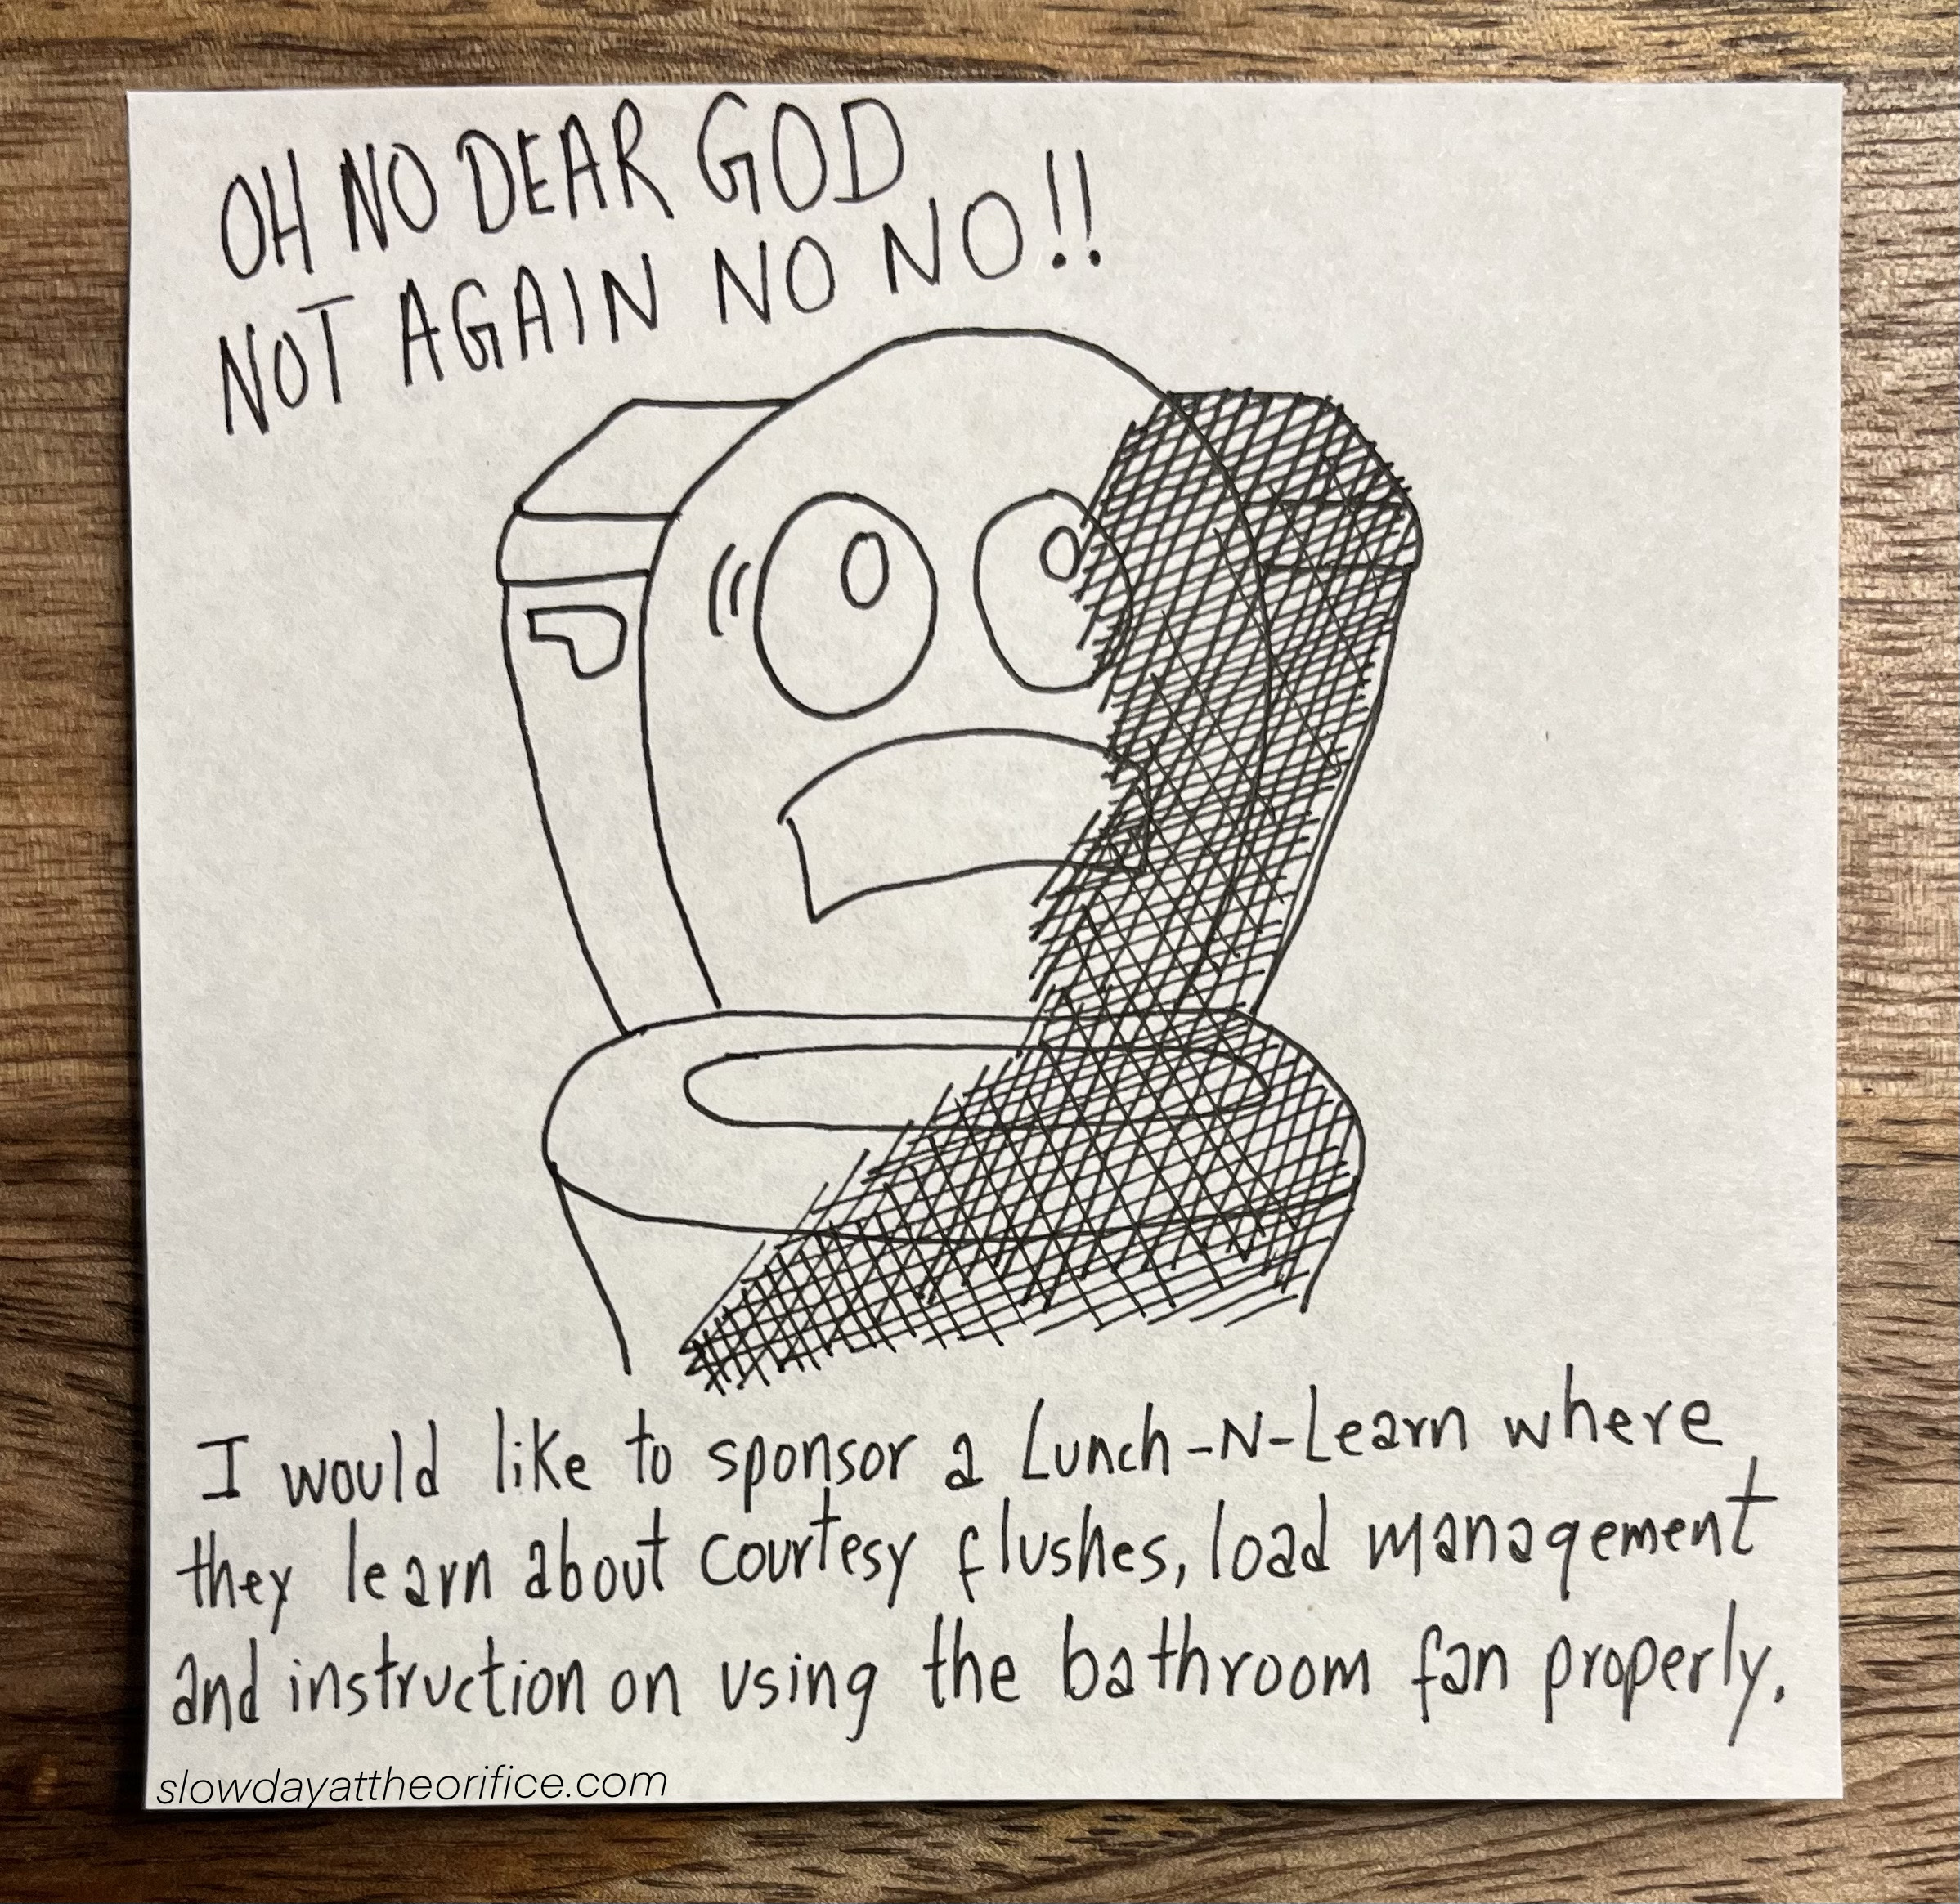 OH NO DEAR GOD
NOT AGAIN NO NO!!
I would like to sponsor a Lunch-N-Learn where
they learn about courtesy flushes, load management
and instruction on using the bathroom fan properly.
slowdayattheorifice.com